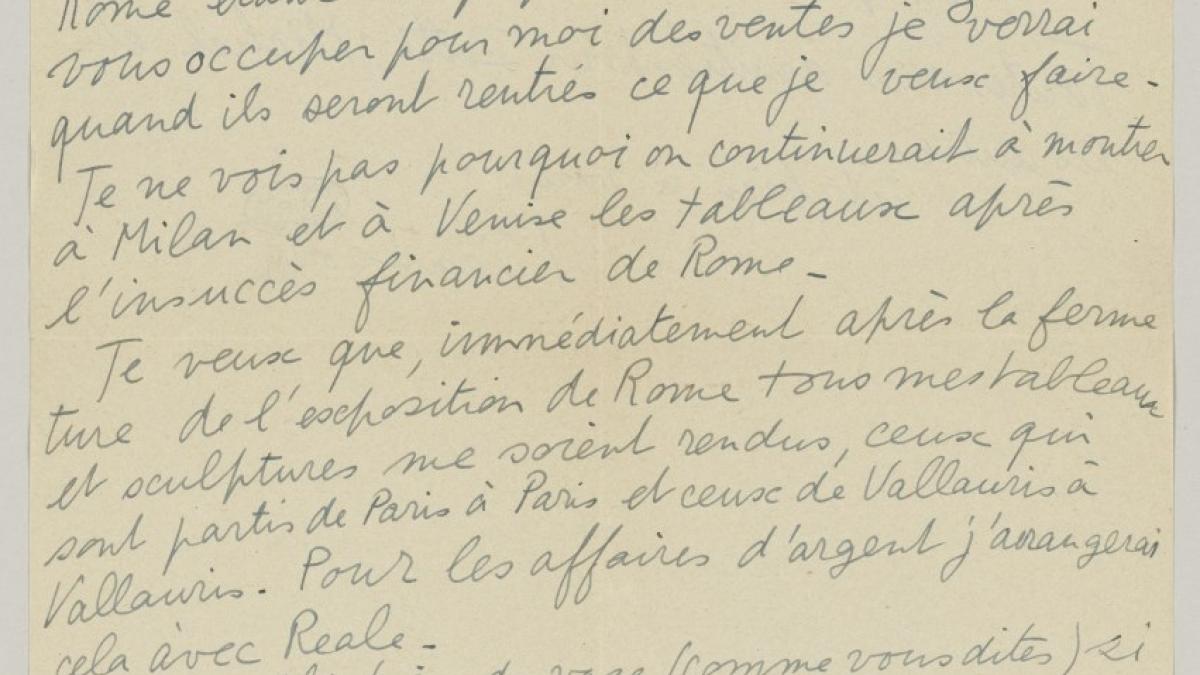 Rome
vous occuper pour moi des ventes je verrai
quand ils seront rentrés ce que je veux faire -
Je ne vois pas pourquoi on continuerait à montrer
à Milan et à Venise les tableaux après
l'insuccès financier de Rome -
Je veux que, immédiatement après la ferme
ture de l'exposition de Rome tous mes tableaux
et sculptures me soient rendus, ceux qui
sont partis de Paris à Paris et ceux de Vallauris à
Vallauris. Pour les affaires d'argent j'arrangerai
cela avec Reale -
(comme vous dites) si